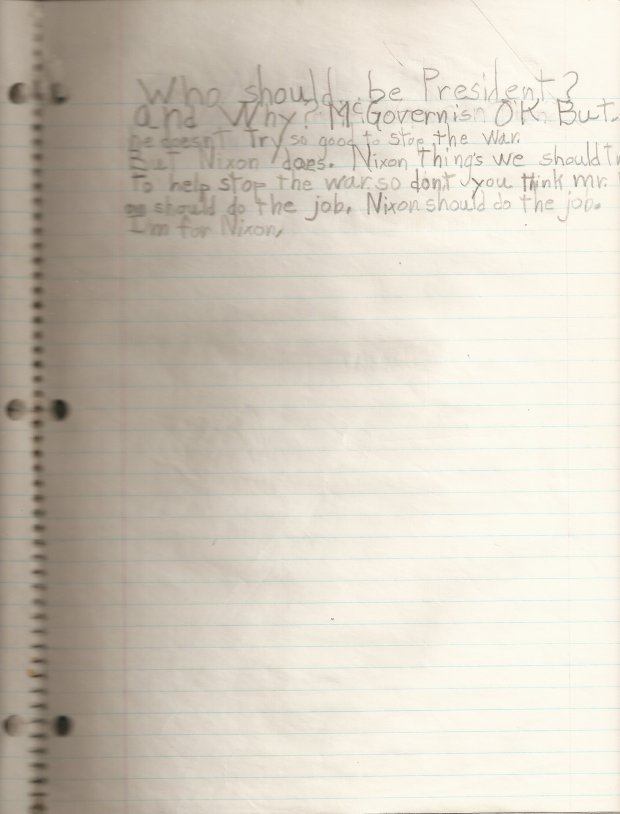 Who should be President?
and Why? McGovern is OK But.
he doesnt Try so good to stop the war.
But Nixon does. Nixon Things we should
To help stop the war so dont you think mr.
on should do the job. Nixon should do the job.
I'm for Nixon,